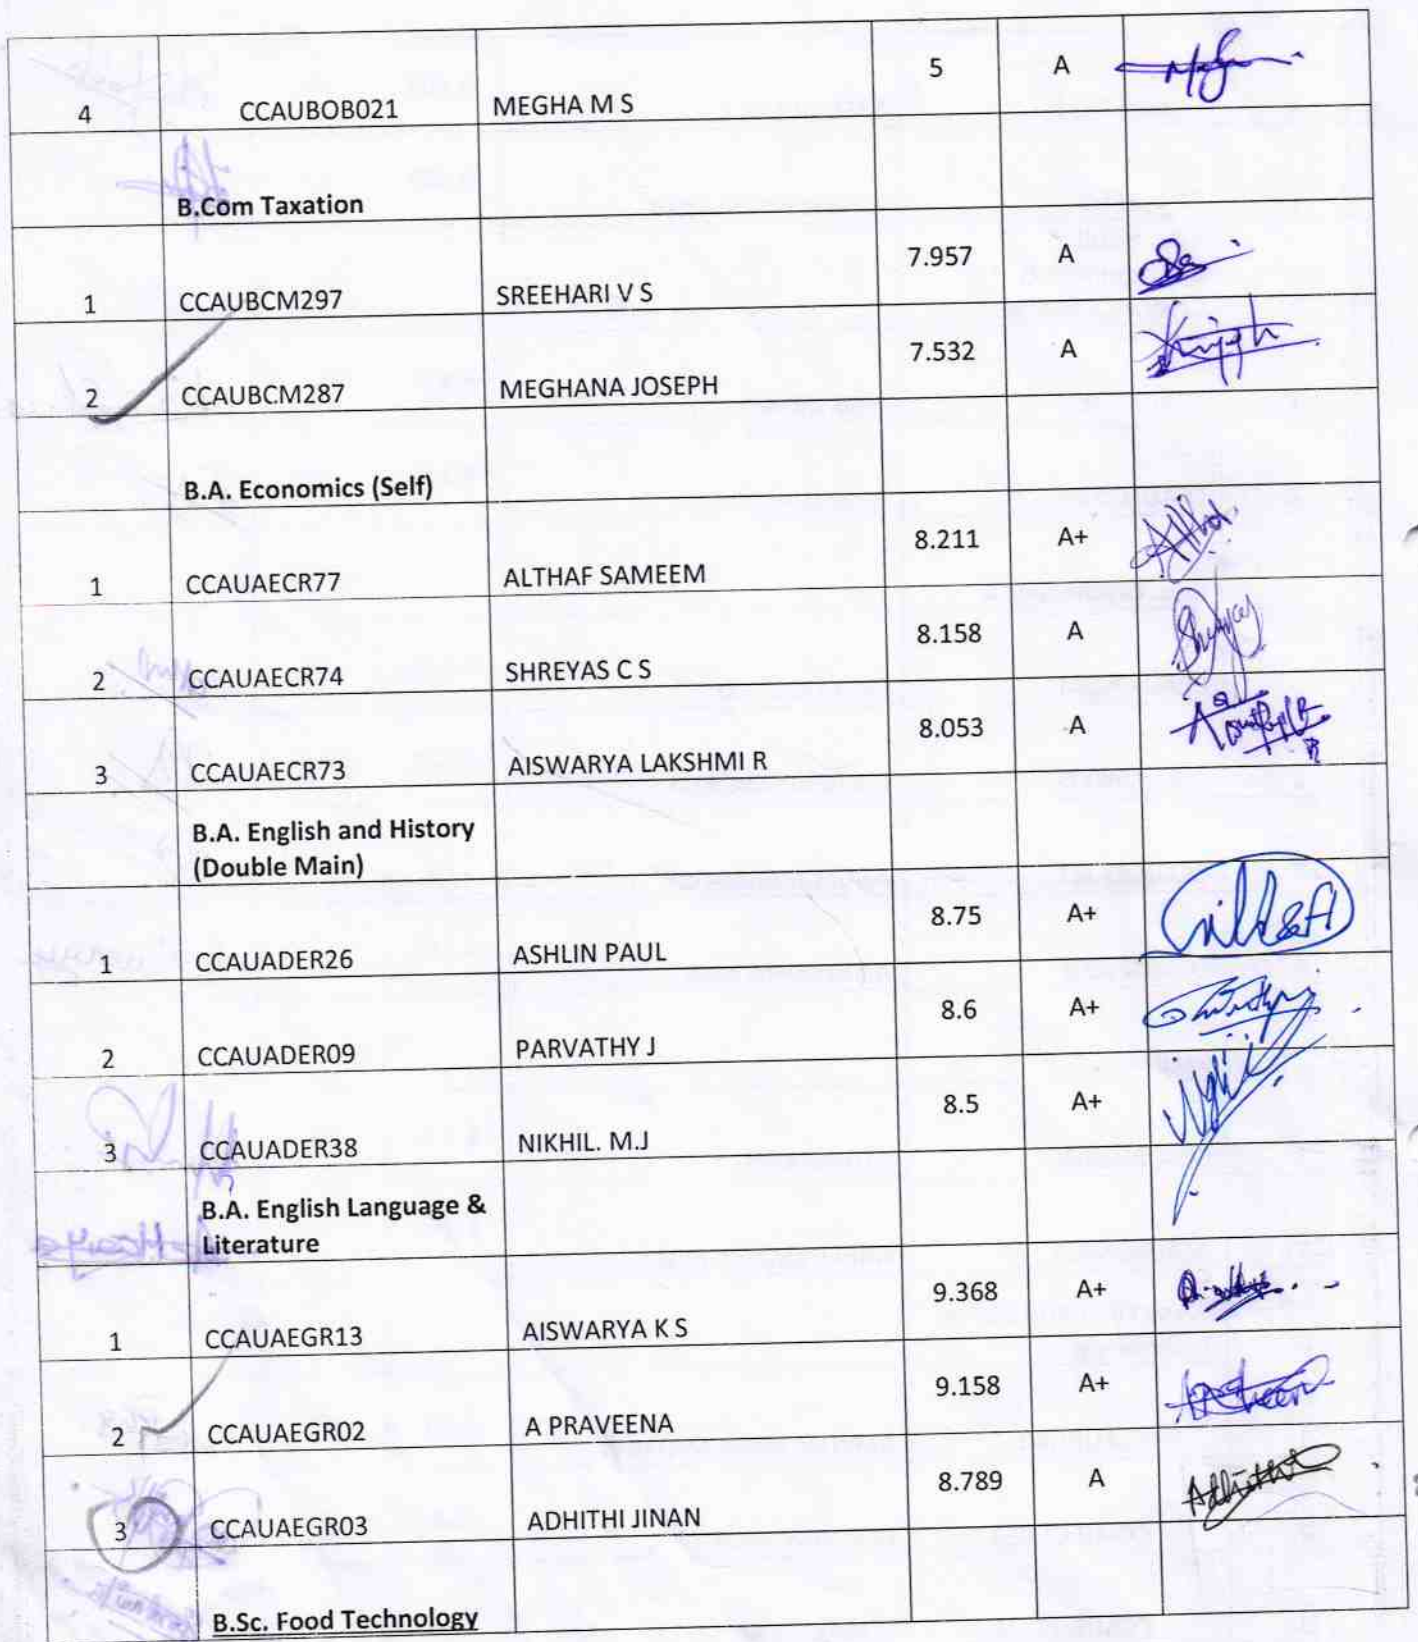 4 CCAUBOB021 MEGHA M S 5 A
B.Com Taxation
1 CCAUBCM297 SREEHARI V S 7.957 A
2 CCAUBCM287 MEGHANA JOSEPH 7.532 A
B.A. Economics (Self)
1 CCAUAECR77 ALTHAF SAMEEM 8.211 A+
2 CCAUAECR74 SHREYAS C S 8.158 A
3 CCAUAECR73 AISWARYA LAKSHMI R 8.053 A
B.A. English and History
(Double Main)
1 CCAUADER26 ASHLIN PAUL 8.75 A+
2 CCAUADER09 PARVATHY J 8.6 A+
3 CCAUADER38 NIKHIL. M.J 8.5 A+
B.A. English Language &
Literature
1 CCAUAEGR13 AISWARYA K S 9.368 A+
2 CCAUAEGR02 A PRAVEENA 9.158 A+
3 CCAUAEGR03 ADHITHI JINAN 8.789 A
B.Sc. Food Technology